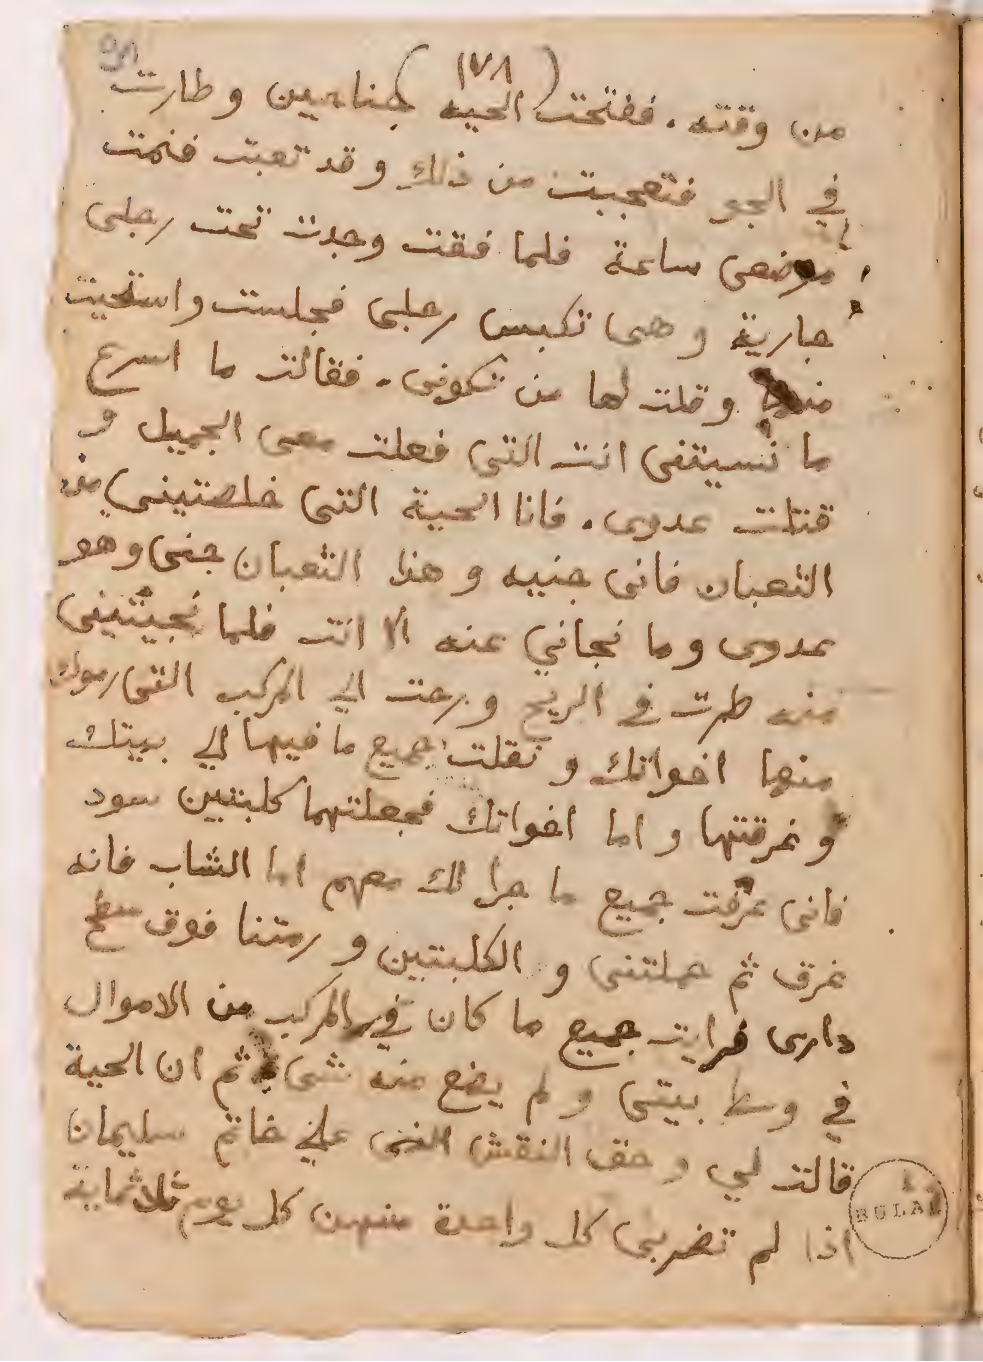 (١٧٨)
من وقته. ففتحت الحيه جناحين وطارت
في الجو فتعجبت من ذلك وقد تعبت فنمت
موضعى ساعة فلما فقت وجدت تحت رجلى
جارية وهى تكبس رجلى فجلست واستحيت
منها وقلت لها من تكونى. فقالت ما اسرع
ما نسيتنى انت التى فعلت معى الجميل و
قتلت عدوى. فانا الحية التى خلصتينى من
الثعبان فانى جنيه وهذا الثعبان جنى وهو
عدوى وما نجاني عنه الا انت فلما نجيتينى
منه طرت في الريح ورحت الي المركب التى رموك
منها اخواتك ونقلت جميع ما فيها الي بيتك
وغرقتها واما اخواتك فجعلتهما كلبتين سود
فانى عرفت جميع ما جرا لك معهم اما الشاب فانه
غرق ثم حملتنى و الكلبتين ورمتنا فوق سطح
دارى فرايت جميع ما كان في المركب من الاموال
في وسط بيتى ولم يضع منه شى ثم ان الحية
قالت لي وحق النقش الذى علي خاتم سليمان
اذا لم تضربى كل واحدة منهن كل يوم ثلاثماية
BULA